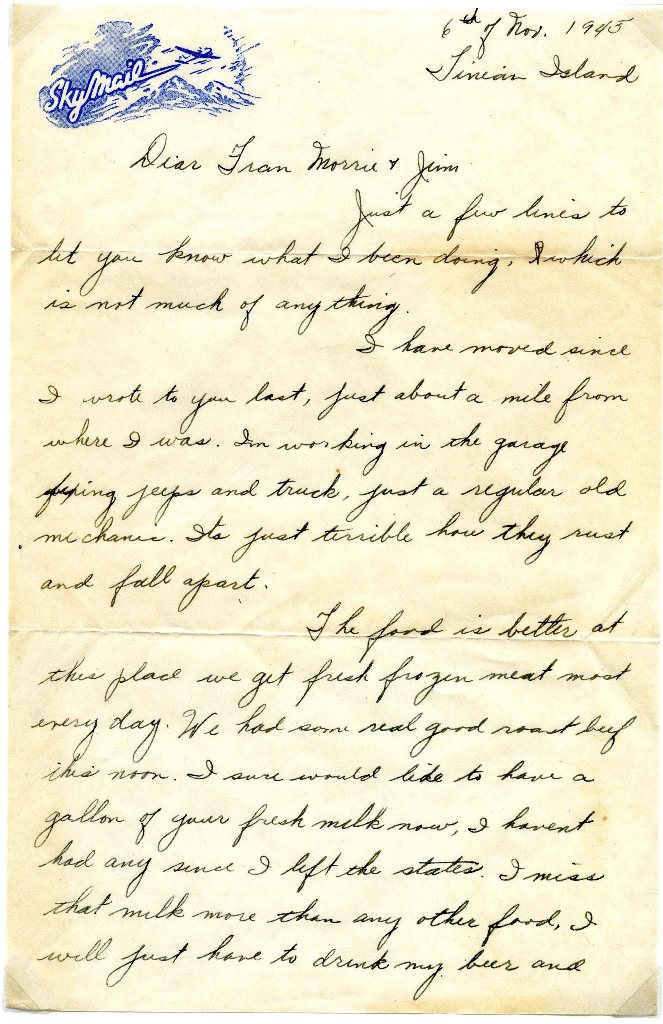 Sky Mail
6th of Nov. 1945
Tinian Island
Dear Fran Morrie & Jim
Just a few lines to
let you know what I been doing, which
is not much of any thing.
I have moved since
I wrote to you last, just about a mile from
where I was. Im working in the garage
fixing jeeps and truck, just a regular old
mechanic. Its just terrible how they rust
and fall apart.
The food is better at
this place we get fresh frozen meat most
every day. We had some real good roast beef
this noon. I sure would like to have a
gallon of your fresh milk now, I havent
had any since I left the states. I miss
that milk more than any other food, I
will just have to drink my beer and